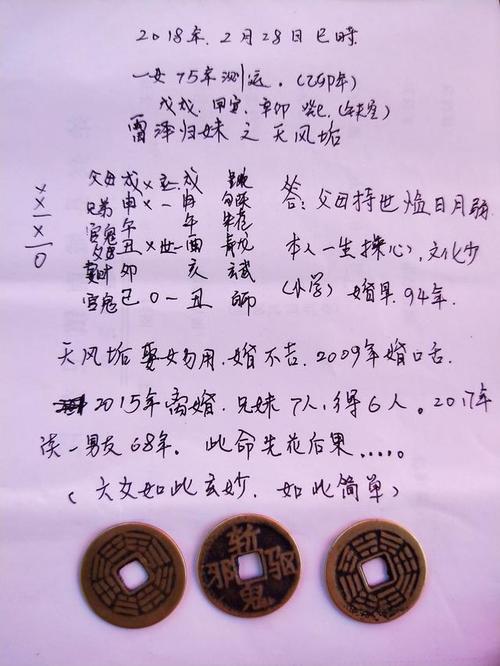 2018年.2月28日巳时
一女75年测运.(乙卯年)
戊戌.甲寅.辛卯 癸巳.(午未空)
雷泽归妹 之 天风姤
父母 戌 x 应 戌
兄弟 申 x 一 申 勾陈
官鬼 午 午 朱雀
父母 丑 x 世 一 酉 青龙
妻财 卯 亥 玄武
官鬼 巳 0 一 丑
x
x
x
0
答:父母持世 日月
本人一生操心,文化少
(小学) 婚早.94年.
天风姤 娶女勿用.婚不吉.2009年婚口舌.
2015年离婚.兄妹7人,得6人。2017年
谈一男友68年. 此命先花后果.....
(六爻如此玄妙.如此简单)
斩
邪 驱
鬼